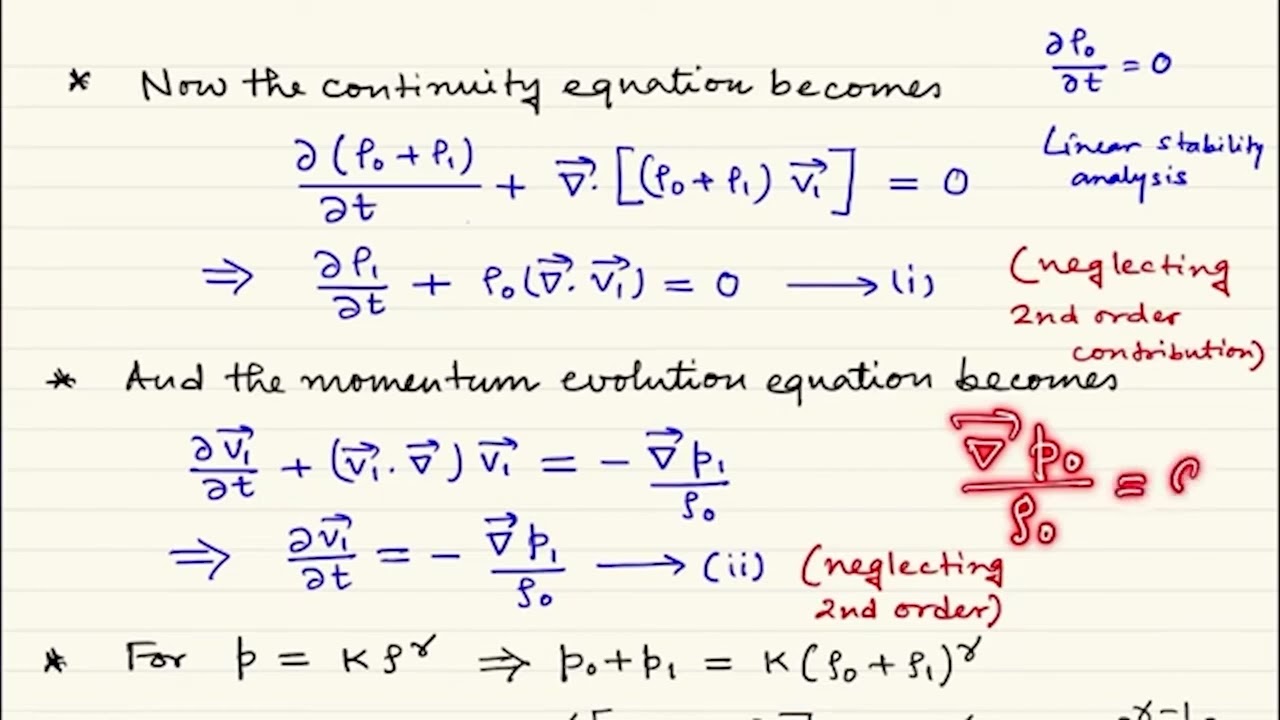 * Now the continuity equation becomes
∂ρ₀/∂t = 0
∂(ρ₀ + ρ₁)/∂t + ∇⃗·[(ρ₀ + ρ₁) v⃗₁] = 0
Linear stability
analysis
⇒ ∂ρ₁/∂t + ρ₀(∇⃗·v⃗₁) = 0 ⟶ (i)
(neglecting
2nd order
contribution)
* And the momentum evolution equation becomes
∂v⃗₁/∂t + (v⃗₁·∇⃗) v⃗₁ = − ∇⃗p₁/ρ₀
∇⃗p₀/ρ₀ =
⇒ ∂v⃗₁/∂t = − ∇⃗p₁/ρ₀ ⟶ (ii)
(neglecting
2nd order)
* For p = Kρ^γ ⇒ p₀ + p₁ = K(ρ₀ + ρ₁)^γ